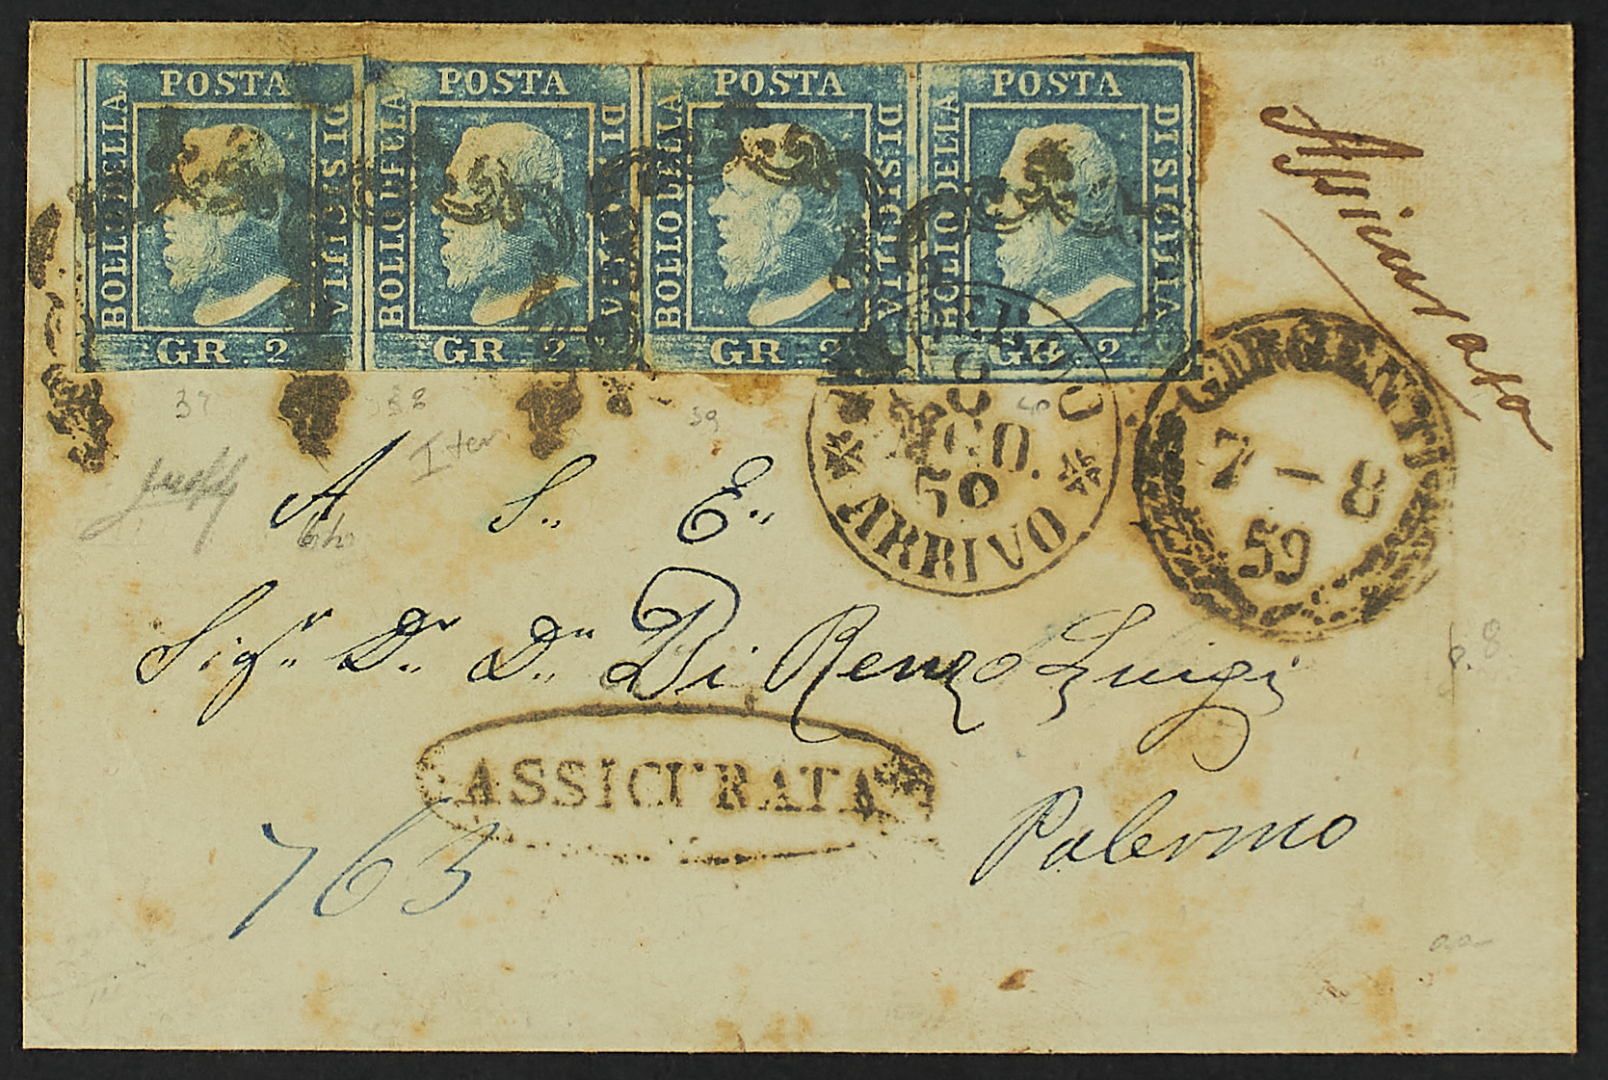 POSTA
BOLLO DELLA
DI SICILIA
GR. 2
POSTA
BOLLO DELLA
DI SICILIA
GR. 2
POSTA
BOLLO DELLA
DI SICILIA
GR. 2
POSTA
BOLLO DELLA
DI SICILIA
GR. 2
Assicurata
GIRGENTI
7-8
59
AGO.
59
ARRIVO
37
38
39
40
A S.. E..
Sigr. Dr. Dn. Di Renzo Luigi
ASSICURATA
763
Palermo
p. 8